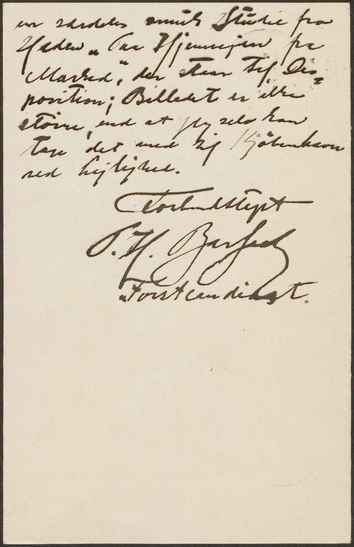 en særdeles smuk Studie fra
Haden „Paa Hjemvejen fra
Marked“, der staar til Dis-
position; Billedet er ikke
større, end at jeg selv kan
tage det med til Kjøbenhavn
ved Lejlighed.
Forbindtligst
P. H. Barfod
Forstcandidat.